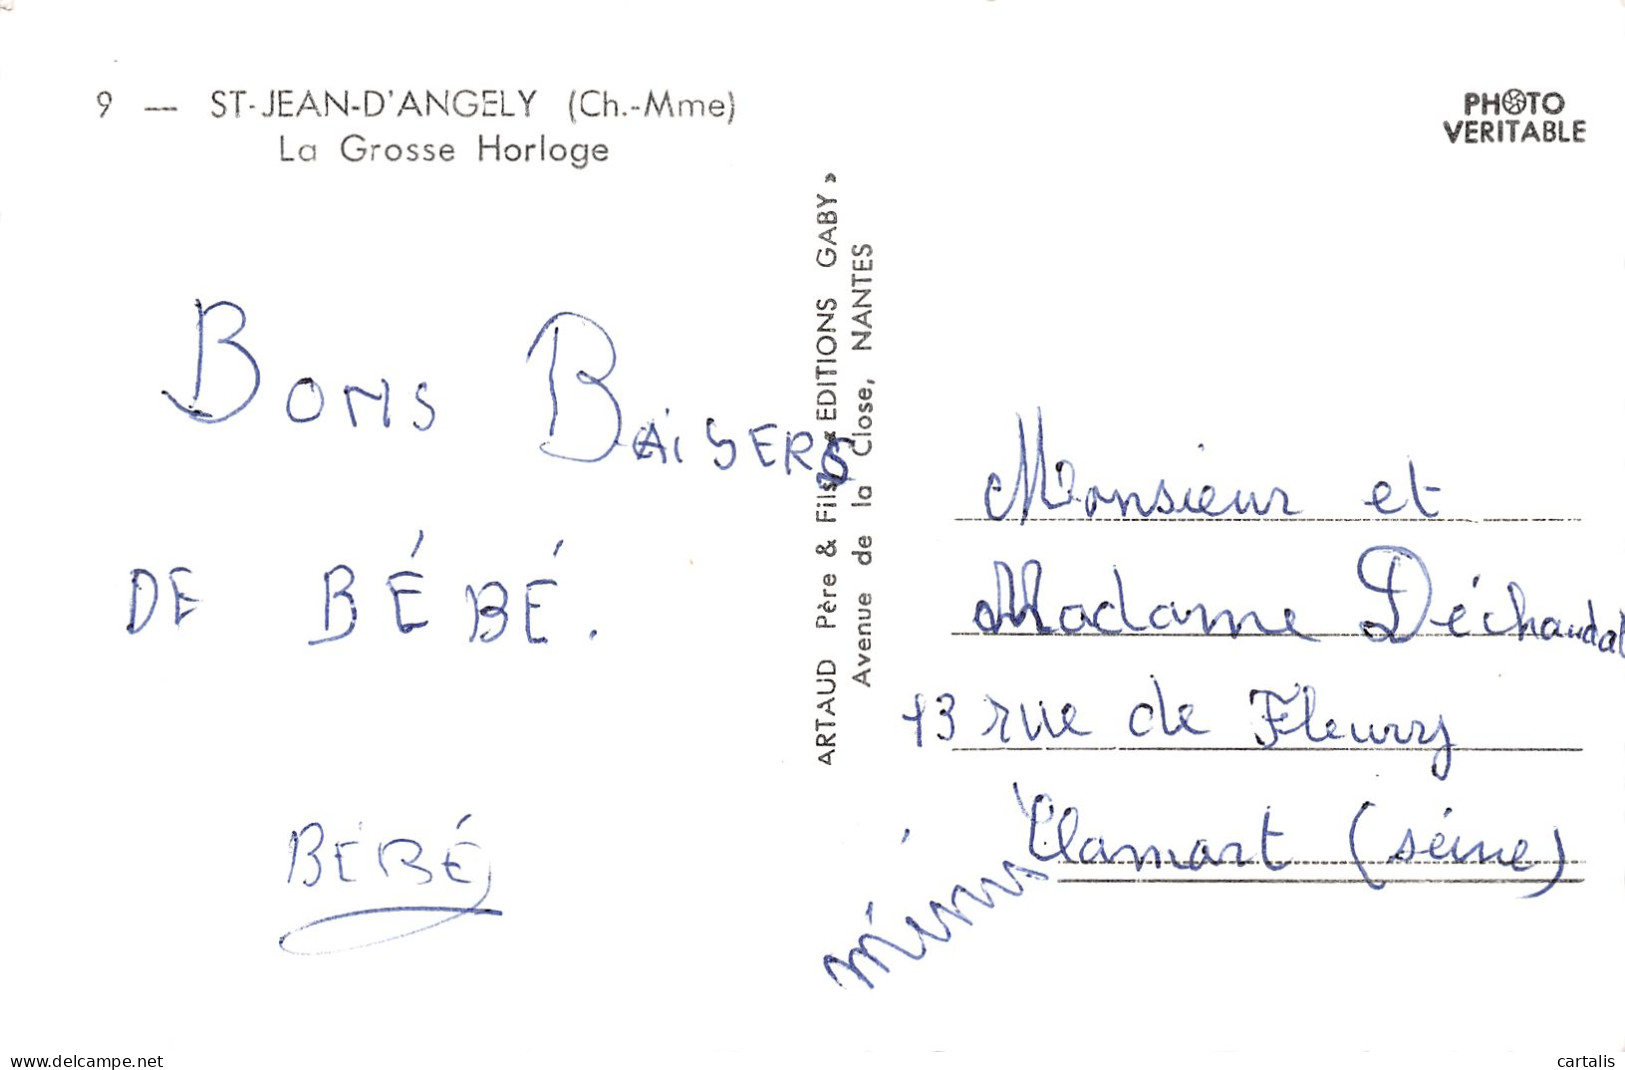 9 — ST-JEAN-D'ANGELY (Ch.-Mme)
La Grosse Horloge
PHOTO
VERITABLE
BONS BAISERS
DE BÉBÉ.
BÉBÉ
ARTAUD Père & Fils « EDITIONS GABY »
Avenue de la Close, NANTES
Monsieur et
Madame Déchaudat
13 rue de Fleury
Clamart (séine)
mimi
www.delcampe.net
cartalis